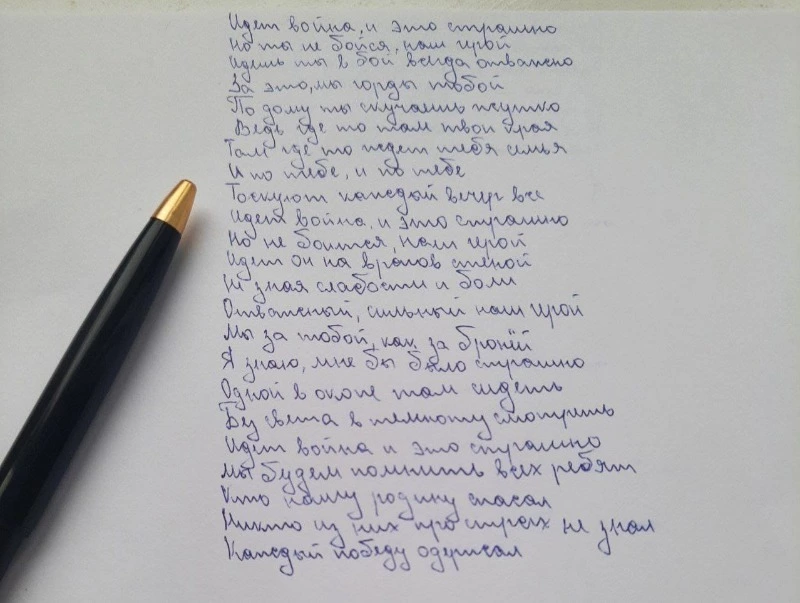 Идет война, и это страшно
Но ты не бойся, наш герой
Идешь ты в бой всегда отважно
За это, мы горды тобой
По дому ты скучаешь жутко
Ведь где то там твои края
Там где то ждет тебя семья
И по тебе, и по тебе
Тоскуют каждый вечер все
Идет война, и это страшно
Но не боится, наш герой
Идет он на врагов стеной
Не зная слабости и боли
Отважный, сильный наш герой
Мы за тобой, как за бронёй
Я знаю, мне бы было страшно
Одной в окопе там сидеть
Без света в темноту смотреть
Идет война и это страшно
Мы будем помнить всех ребят
Кто нашу родину спасал
Никто из них про страх не знал
Каждый победу одержал